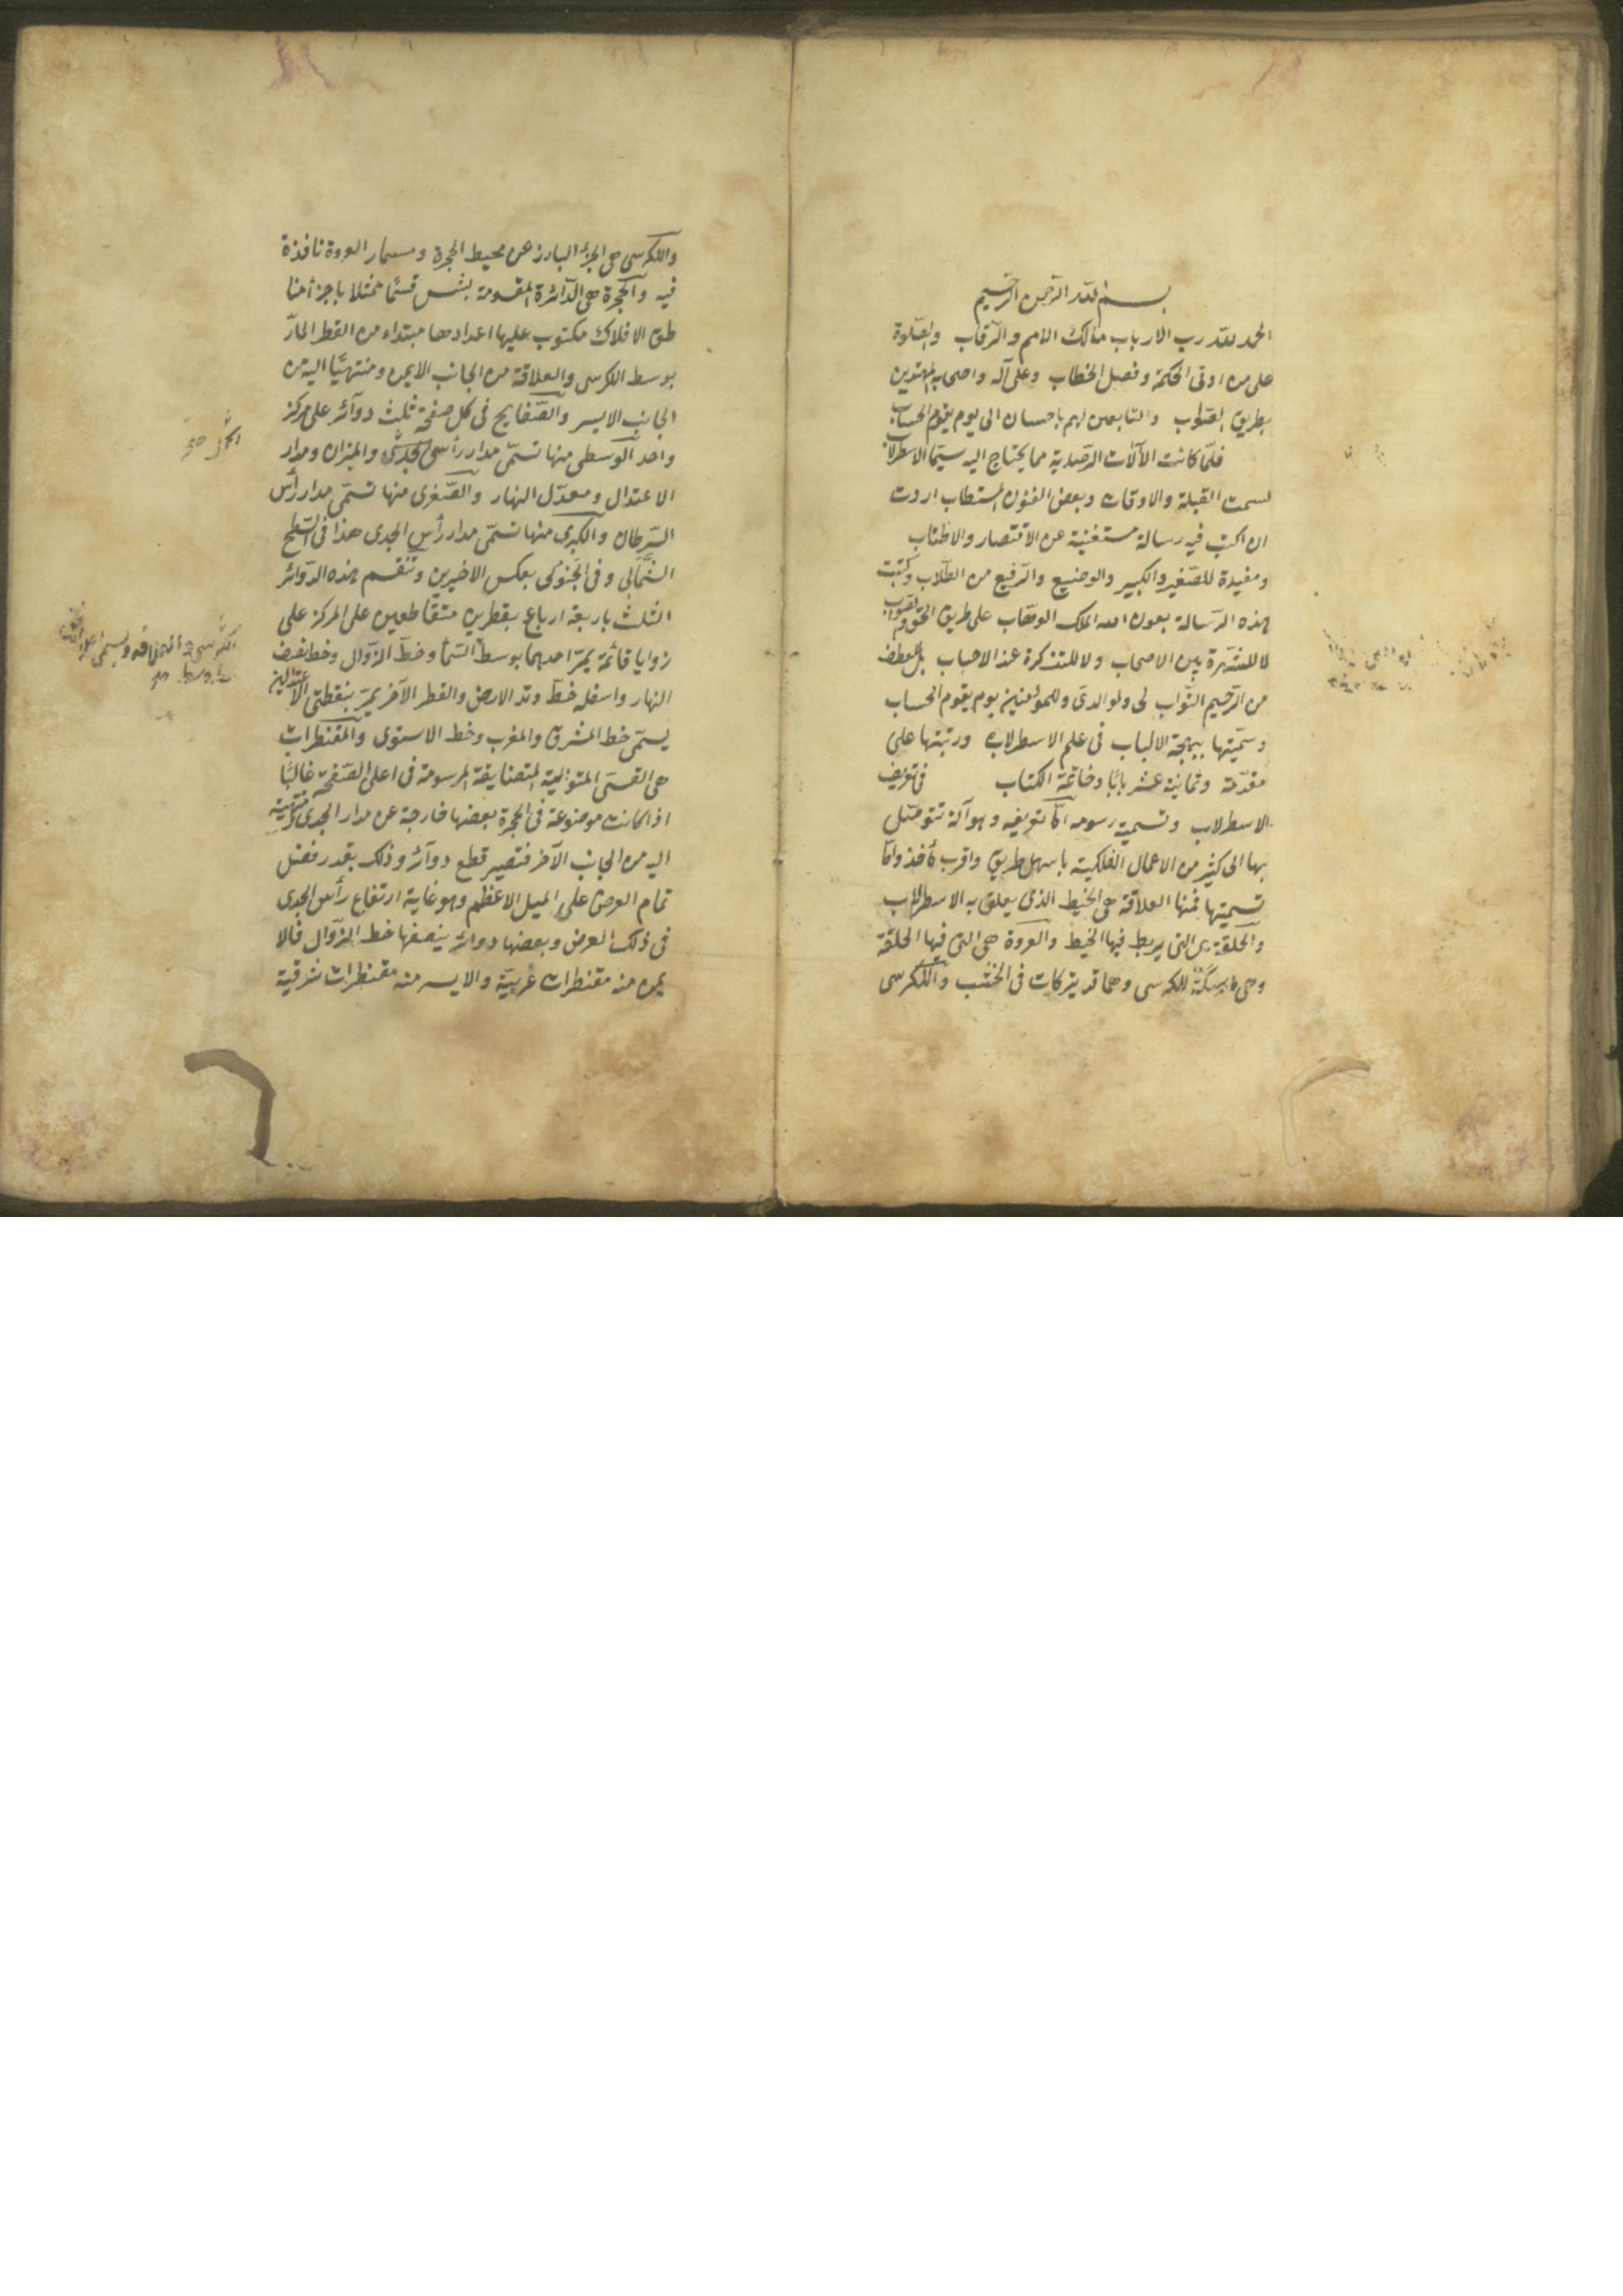 بسم الله الرحمن الرحيم
الحمد لله رب الارباب مالك الامم والرّقاب والصّلوة
على من اوتى الحكمة وفصل الخطاب وعلى آله واصحابه المهتدين
بطريق الصّواب والتّابعين لهم باحسان الى يوم يقوم الحساب
فلمّا كانت الآلات الرّصدية مما يحتاج اليه سيّما الاسطرلاب
لسمت القبلة والاوقات وبعض الفنون المستطاب اردت
ان اكتب فيه رسالة مستغنية عن الاقتصار والاطناب
ومفيدة للصّغير والكبير والوضيع والرّفيع من الطّلاب وكتبت
هذه الرّسالة بعون الله الملك الوهّاب على طريق الحق والصّواب
لا للشّهرة بين الاصحاب ولا للتذكرة عند الاحباب بل للعطف
من الرّحيم التّواب لى ولوالدىّ وللمؤمنين يوم يقوم الحساب
وسمّيتها ببهجة الالباب فى علم الاسطرلاب ورتبتها على
مقدّمة وثمانية عشر بابًا وخاتمة الكتاب فى تعريف
الاسطرلاب وتسمية رسومه امّا تعريفه وهو آلة تتوصّل
بها الى كثير من الاعمال الفلكيّة باسهل طريق واقرب مأخذ وامّا
تسميتها فمنها العلاقة هى الخيط الذى يعلق به الاسطرلاب
والحلقة هى التى يربط فيها الخيط والعروة هى التى فيها الحلقة
وهى ماسكة للكرسى وهما قد يتركان فى الخشب والكرسى
والكرسى هى الجزء البارز عن محيط الحجرة ومسمار العروة نافذة
فيه والحجرة هى الدّائرة المقسومة بشس قسمًا ممثلا باجزأ منا
طق الافلاك مكتوب عليها اعدادها مبتداء من القطر المارّ
بوسط الكرسى والعلاقة من الجانب الايمن ومنتهيًا اليه من
الجانب الايسر والصّفايح فى كل صفحة ثلث دوآئر على مركز
واحد الوسطى منها تسمّى مدار رأسى الجدى والميزان ومدار
الاعتدال ومعدّل النهار والصّغرى منها تسمّى مدار رأس
السّرطان والكبرى منها تسمّى مدار رأس الجدى هذا فى السّطح
الشّمالى وفى الجنوبى بعكس الاخيرين وتنقسم هذه الدّوآئر
الثلث باربعة ارباع بقطرين متقاطعين على المركز على
زوايا قائمة يمرّ احدهما بوسط السّمأ وخطّ الزّوال وخط نصف
النهار واسفله خطّ وتد الارض والقطر الآخر يمرّ بنقطتى الاعتدالين
يسمّى خط المشرق والمغرب وخط الاستوى والمقنطرات
هى القسىّ المتوالية المتضايقة المرسومة فى اعلى الصّفحة غالبًا
اذا كانت موضوعة فى الحجرة بعضها خارجة عن مدار الجدى منتهية
اليه من الجانب الآخر فتصير قطع دوآئر وذلك بقدر فضل
تمام العرض على الميل الاعظم وهو غاية ارتفاع رأس الجدى
فى ذلك العرض وبعضها دوائر ينصفها خط الزّوال فالا
يمن منه مقنطرات غربيّة والايسر منه مقنطرات شرقية
الحمل صح